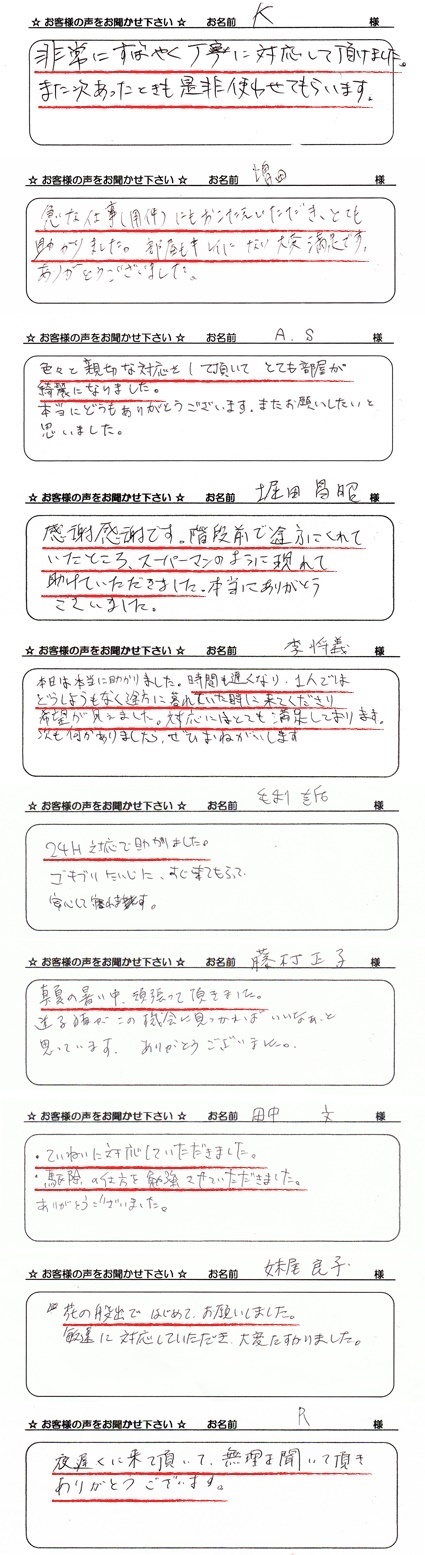 ☆ お客様の声をお聞かせ下さい ☆ お名前 K 様
非常にすばやく丁寧に対応して頂けました。
また次あったときも是非使わせてもらいます。
☆ お客様の声をお聞かせ下さい ☆ お名前 増田 様
急な仕事(用件)にもおこたえいただき、とても
助かりました。部屋もキレイになり大変満足です。
ありがとうございました。
☆ お客様の声をお聞かせ下さい ☆ お名前 A.S 様
色々と親切な対応をして頂いてとても部屋が
綺麗になりました。
本当にどうもありがとうございます。またお願いしたいと
思いました。
☆ お客様の声をお聞かせ下さい ☆ お名前 堀田昌昭 様
感謝感謝です。階段前で途方にくれて
いたところ、スーパーマンのように現れて
助けていただきました。本当にありがとう
ございました。
☆ お客様の声をお聞かせ下さい ☆ お名前 李将義 様
本日は本当に助かりました。時間も遅くなり、1人では
どうしようもなく途方に暮れていた時に来てくださり
希望が見えました。対応にはとても満足しております。
次も何かありましたら、ぜひおねがいします
☆ お客様の声をお聞かせ下さい ☆ お名前 毛利 様
24H対応で助かりました。
ゴキブリたいじに、すぐ来てもらって
安心して寝れます。
☆ お客様の声をお聞かせ下さい ☆ お名前 藤村正子 様
真夏の暑い中、頑張って頂きました。
この機会に見つかればいいなぁ、と
思っています。ありがとうございました。
☆ お客様の声をお聞かせ下さい ☆ お名前 田中 文 様
・ていねいに対応していただきました。
・駆除の仕方を勉強させていただきました。
ありがとうございました。
☆ お客様の声をお聞かせ下さい ☆ お名前 妹尾良子 様
花の搬出ではじめてお願いしました。
敏速に対応していただき、大変たすかりました。
☆ お客様の声をお聞かせ下さい ☆ お名前 R 様
夜遅くに来て頂いて、無理を聞いて頂き
ありがとうございます。